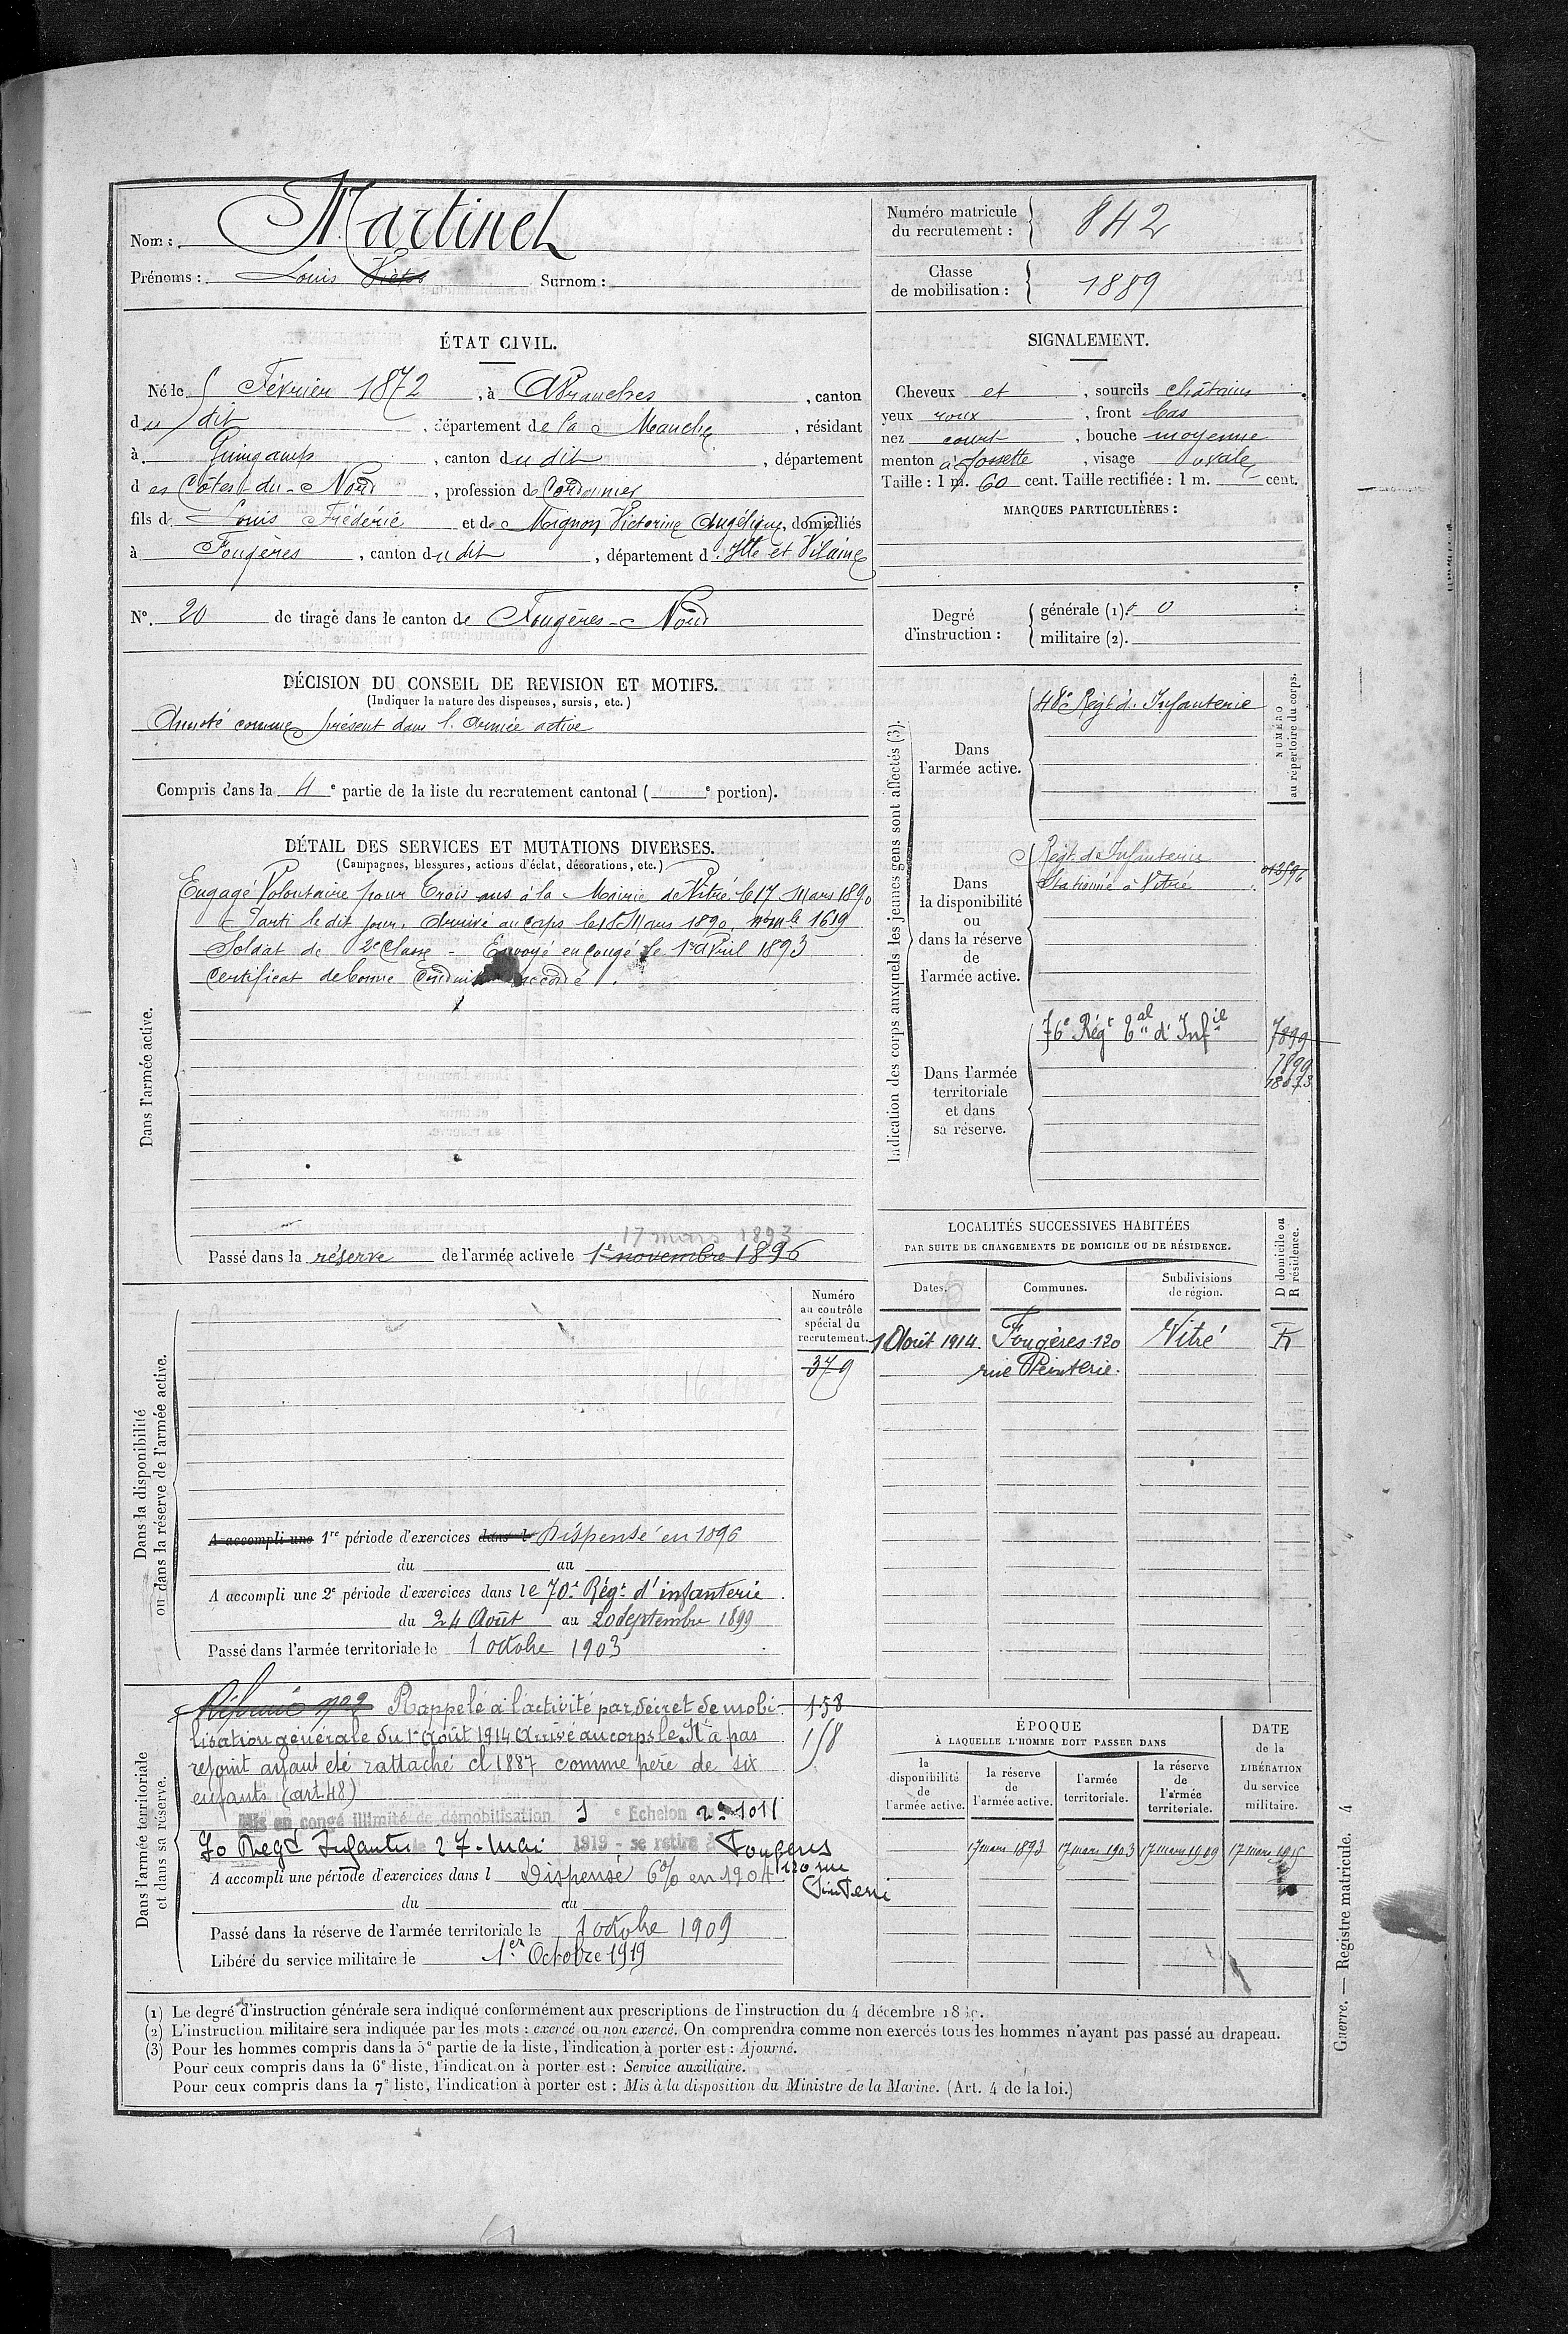 Nom : Martinet
Prénoms : Louis Victor Surnom :
Numéro matricule du recrutement : 842
Classe de mobilisation : 1889
ÉTAT CIVIL.
Né le 5 Février 1872, à Avranches, canton
du dit, département de la Manche, résidant
à Guingamp, canton du dit, département
des Côtes-du-Nord, profession de Cordonnier
fils de Louis Frédéric et de Mignon Victorine Angélique, domiciliés
à Fougères, canton du dit, département d'Ille et Vilaine
N°. 20 de tirage dans le canton de Fougères-Nord
SIGNALEMENT.
Cheveux et, sourcils châtains
yeux roux, front bas
nez court, bouche moyenne
menton à fossette, visage ovale
Taille : 1 m. 60 cent. Taille rectifiée : 1 m. cent.
MARQUES PARTICULIÈRES :
Degré d'instruction :
générale (1). 0
militaire (2).
DÉCISION DU CONSEIL DE REVISION ET MOTIFS.
(Indiquer la nature des dispenses, sursis, etc.)
Annoté comme présent dans l'armée active
Compris dans la 4e partie de la liste du recrutement cantonal ( e portion).
DÉTAIL DES SERVICES ET MUTATIONS DIVERSES.
(Campagnes, blessures, actions d'éclat, décorations, etc.)
Dans l'armée active.
Engagé Volontaire pour trois ans à la Mairie de Vitré le 17 Mars 1890
Parti le dit jour. Arrivé au Corps le 18 Mars 1890. n° mle 1619
Soldat de 2e Classe - Envoyé en Congé le 1er Avril 1893
Certificat de bonne Conduite accordé.
17 mars 1893
Passé dans la réserve de l'armée active le 1er novembre 1896
Indication des corps auxquels les jeunes gens sont affectés (3).
NUMÉRO au répertoire du corps.
Dans l'armée active.
48e Régt d'Infanterie
Dans la disponibilité ou dans la réserve de l'armée active.
Régt de Infanterie
Stationné à Vitré
Dans l'armée territoriale et dans sa réserve.
76e Régt tal d'Infie
7899
7899
18073
LOCALITÉS SUCCESSIVES HABITÉES
PAR SUITE DE CHANGEMENTS DE DOMICILE OU DE RÉSIDENCE.
Dates. Communes. Subdivisions de région. D domicile ou R résidence.
1 Août 1914. Fougères 120 Vitré R
rue Pinterie.
Dans la disponibilité ou dans la réserve de l'armée active.
Numéro au contrôle spécial du recrutement.
379
A accompli une 1re période d'exercices dans l Dispensé en 1896
du au
A accompli une 2e période d'exercices dans le 70e Régt d'infanterie
du 24 Août au 20 septembre 1899
Passé dans l'armée territoriale le 1 octobre 1903
Dans l'armée territoriale et dans sa réserve.
Réformé n° 2 Rappelé à l'activité par décret de mobi- 158
lisation générale du 1er Août 1914 Arrivé au corps le N'a pas 158
rejoint ayant été rattaché cl 1887 comme père de six
enfants (art. 48)
Mis en congé illimité de démobilisation 1 e Echelon
70 Regt Infanterie le 27 - Mai 1919 - se retire à Fougères
120 rue Pinterie
A accompli une période d'exercices dans l Dispensé 6% en 1904
du au
Passé dans la réserve de l'armée territoriale le 1 octobre 1909
Libéré du service militaire le 1er Octobre 1919
ÉPOQUE
À LAQUELLE L'HOMME DOIT PASSER DANS
la disponibilité de l'armée active.
la réserve de l'armée active.
l'armée territoriale.
la réserve de l'armée territoriale.
DATE de la LIBÉRATION du service militaire.
17 mars 1893 17 mars 1903 17 mars 1909 17 mars 1915
(1) Le degré d'instruction générale sera indiqué conformément aux prescriptions de l'instruction du 4 décembre
(2) L'instruction militaire sera indiquée par les mots : exercé ou non exercé. On comprendra comme non exercés tous les hommes n'ayant pas passé au drapeau.
(3) Pour les hommes compris dans la 5e partie de la liste, l'indication à porter est : Ajourné.
Pour ceux compris dans la 6e liste, l'indication à porter est : Service auxiliaire.
Pour ceux compris dans la 7e liste, l'indication à porter est : Mis à la disposition du Ministre de la Marine. (Art. 4 de la loi.)
Guerre. — Registre matricule. 4